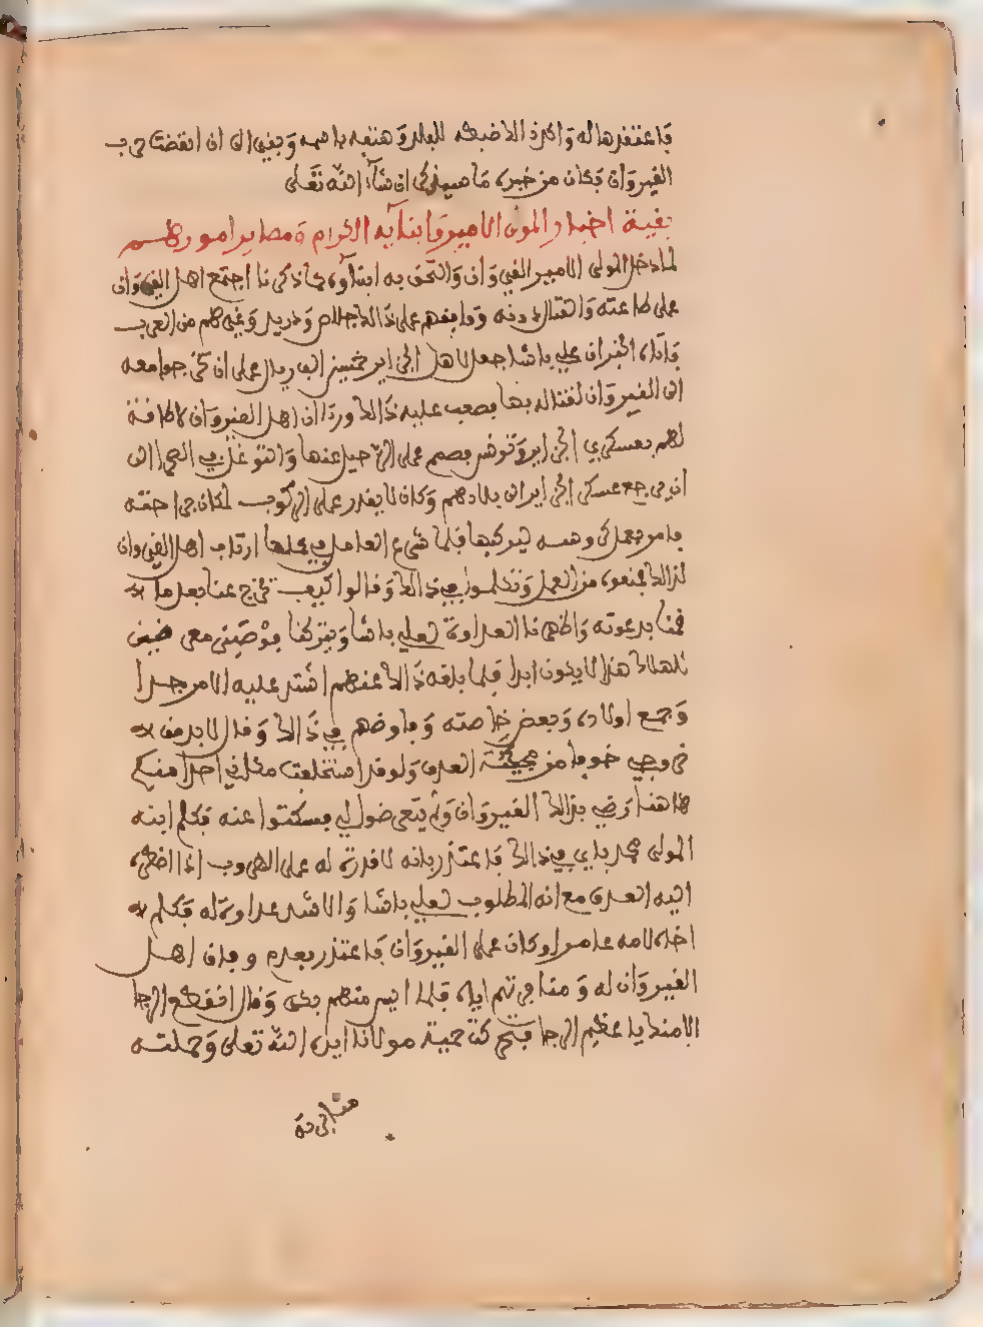 فاعتقدها له واكره الاضبطه للبلد وهتف باسمه وبقي الى ان انقضت حرب
القيروان فكان من خبره ما سيذكر ان شاء الله تعلى
بقية اخبار المولى الامير وابنايه الكرام ومصاير امورهم
لما دخل المولى الامير القيروان والتحق به ابناؤه كما ذكرنا اجتمع اهل القيروان
على طاعته والقتال دونه ووافقهم على ذالك جلاص ودريد وغيرهم من العرب
فاتاه الخبر ان علي باشا جعل لاهل الجزاير خمسين الف ريال على ان جوامعه
الى القيروان لقتاله بها فصعب عليه ذالك وراا ان اهل القيروان لا طاقة
لهم بعسكري الجزاير وتونس فصمم على الرحيل عنها والتوغل في الصحرا الى
ان يرجع عسكر الجزاير الى بلادهم وكان لا يقدر على الركوب لمكان جراحته
فامر بعمل كروسه ليركبها فلما شرع العامل في عملها ارتاب اهل القيروان
لذالك فمنعوه من العمل وتكلموا في ذالك وقالوا كيف تخرج عنا بعد ما
قمنا بدعوته واظهرنا العداوة لعلي باشا ويتركنا
للهلاك هذا لا يكون ابدا فلما بلغه ذالك عنهم اشتد عليه الامر جدا
وجمع اولاده وبعض خاصته وفاوضهم في ذالك وقال لا بد من
خروجي خوفا من محلة العدو ولو قد استخلفت مكاني احدا منكم
هاهنا رضي بذالك القيروان ولم يتعرضوا لي فسكتوا عنه فكلم ابنه
المولى محمد باي في ذالك فاعتذر بانه لا قدرة له على الهروب اذا اضطره
اليه العدو مع انه المطلوب لعلي باشا والاشد عداوة له فكلم
اخاه لامه عامر وكان على القيروان فاعتذر بعدم وفاء اهل
القيروان له ومناجرتهم اياه فلما ايس منهم بكى وقال انقطع الرجا
الا منك يا عظيم الرجا فتحركت حمية مولانا ايده الله تعلى وحملته